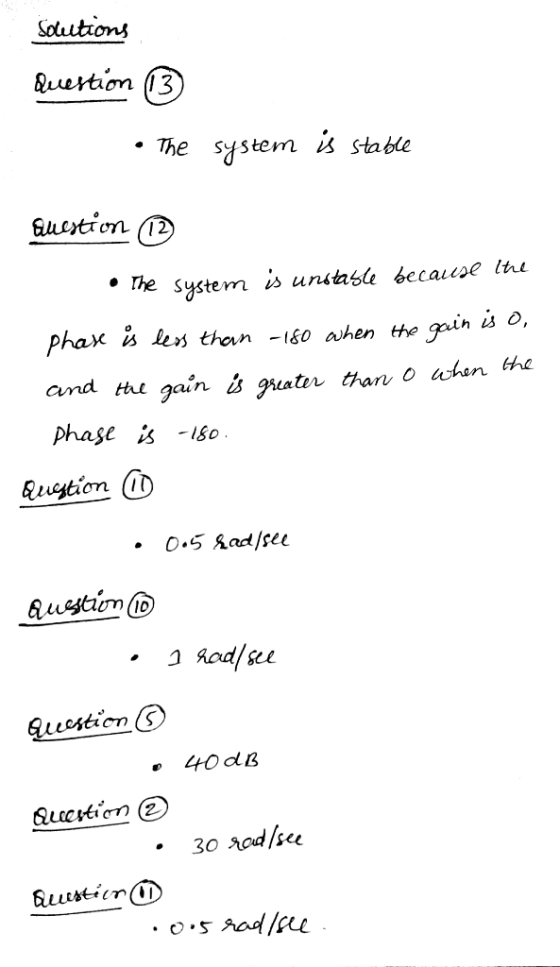 Solutions
Question 13
• The system is stable
Question 12
• The system is unstable because the
phase is less than -180 when the gain is 0,
and the gain is greater than 0 when the
phase is -180.
Question 11
• 0.5 rad/sec
Question 10
• 1 rad/sec
Question 5
• 40 dB
Question 2
• 30 rad/sec
Question 11
• 0.5 rad/sec.